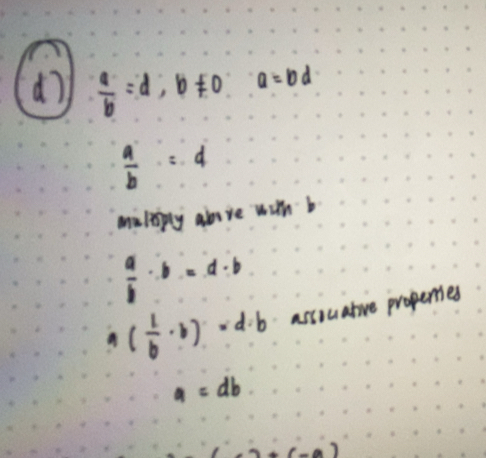 d) a/b = d, b ≠ 0 a = bd
a/b = d
multiply above with b
a/b · b = d · b
a (1/b · b) = d·b associative properties
a = db